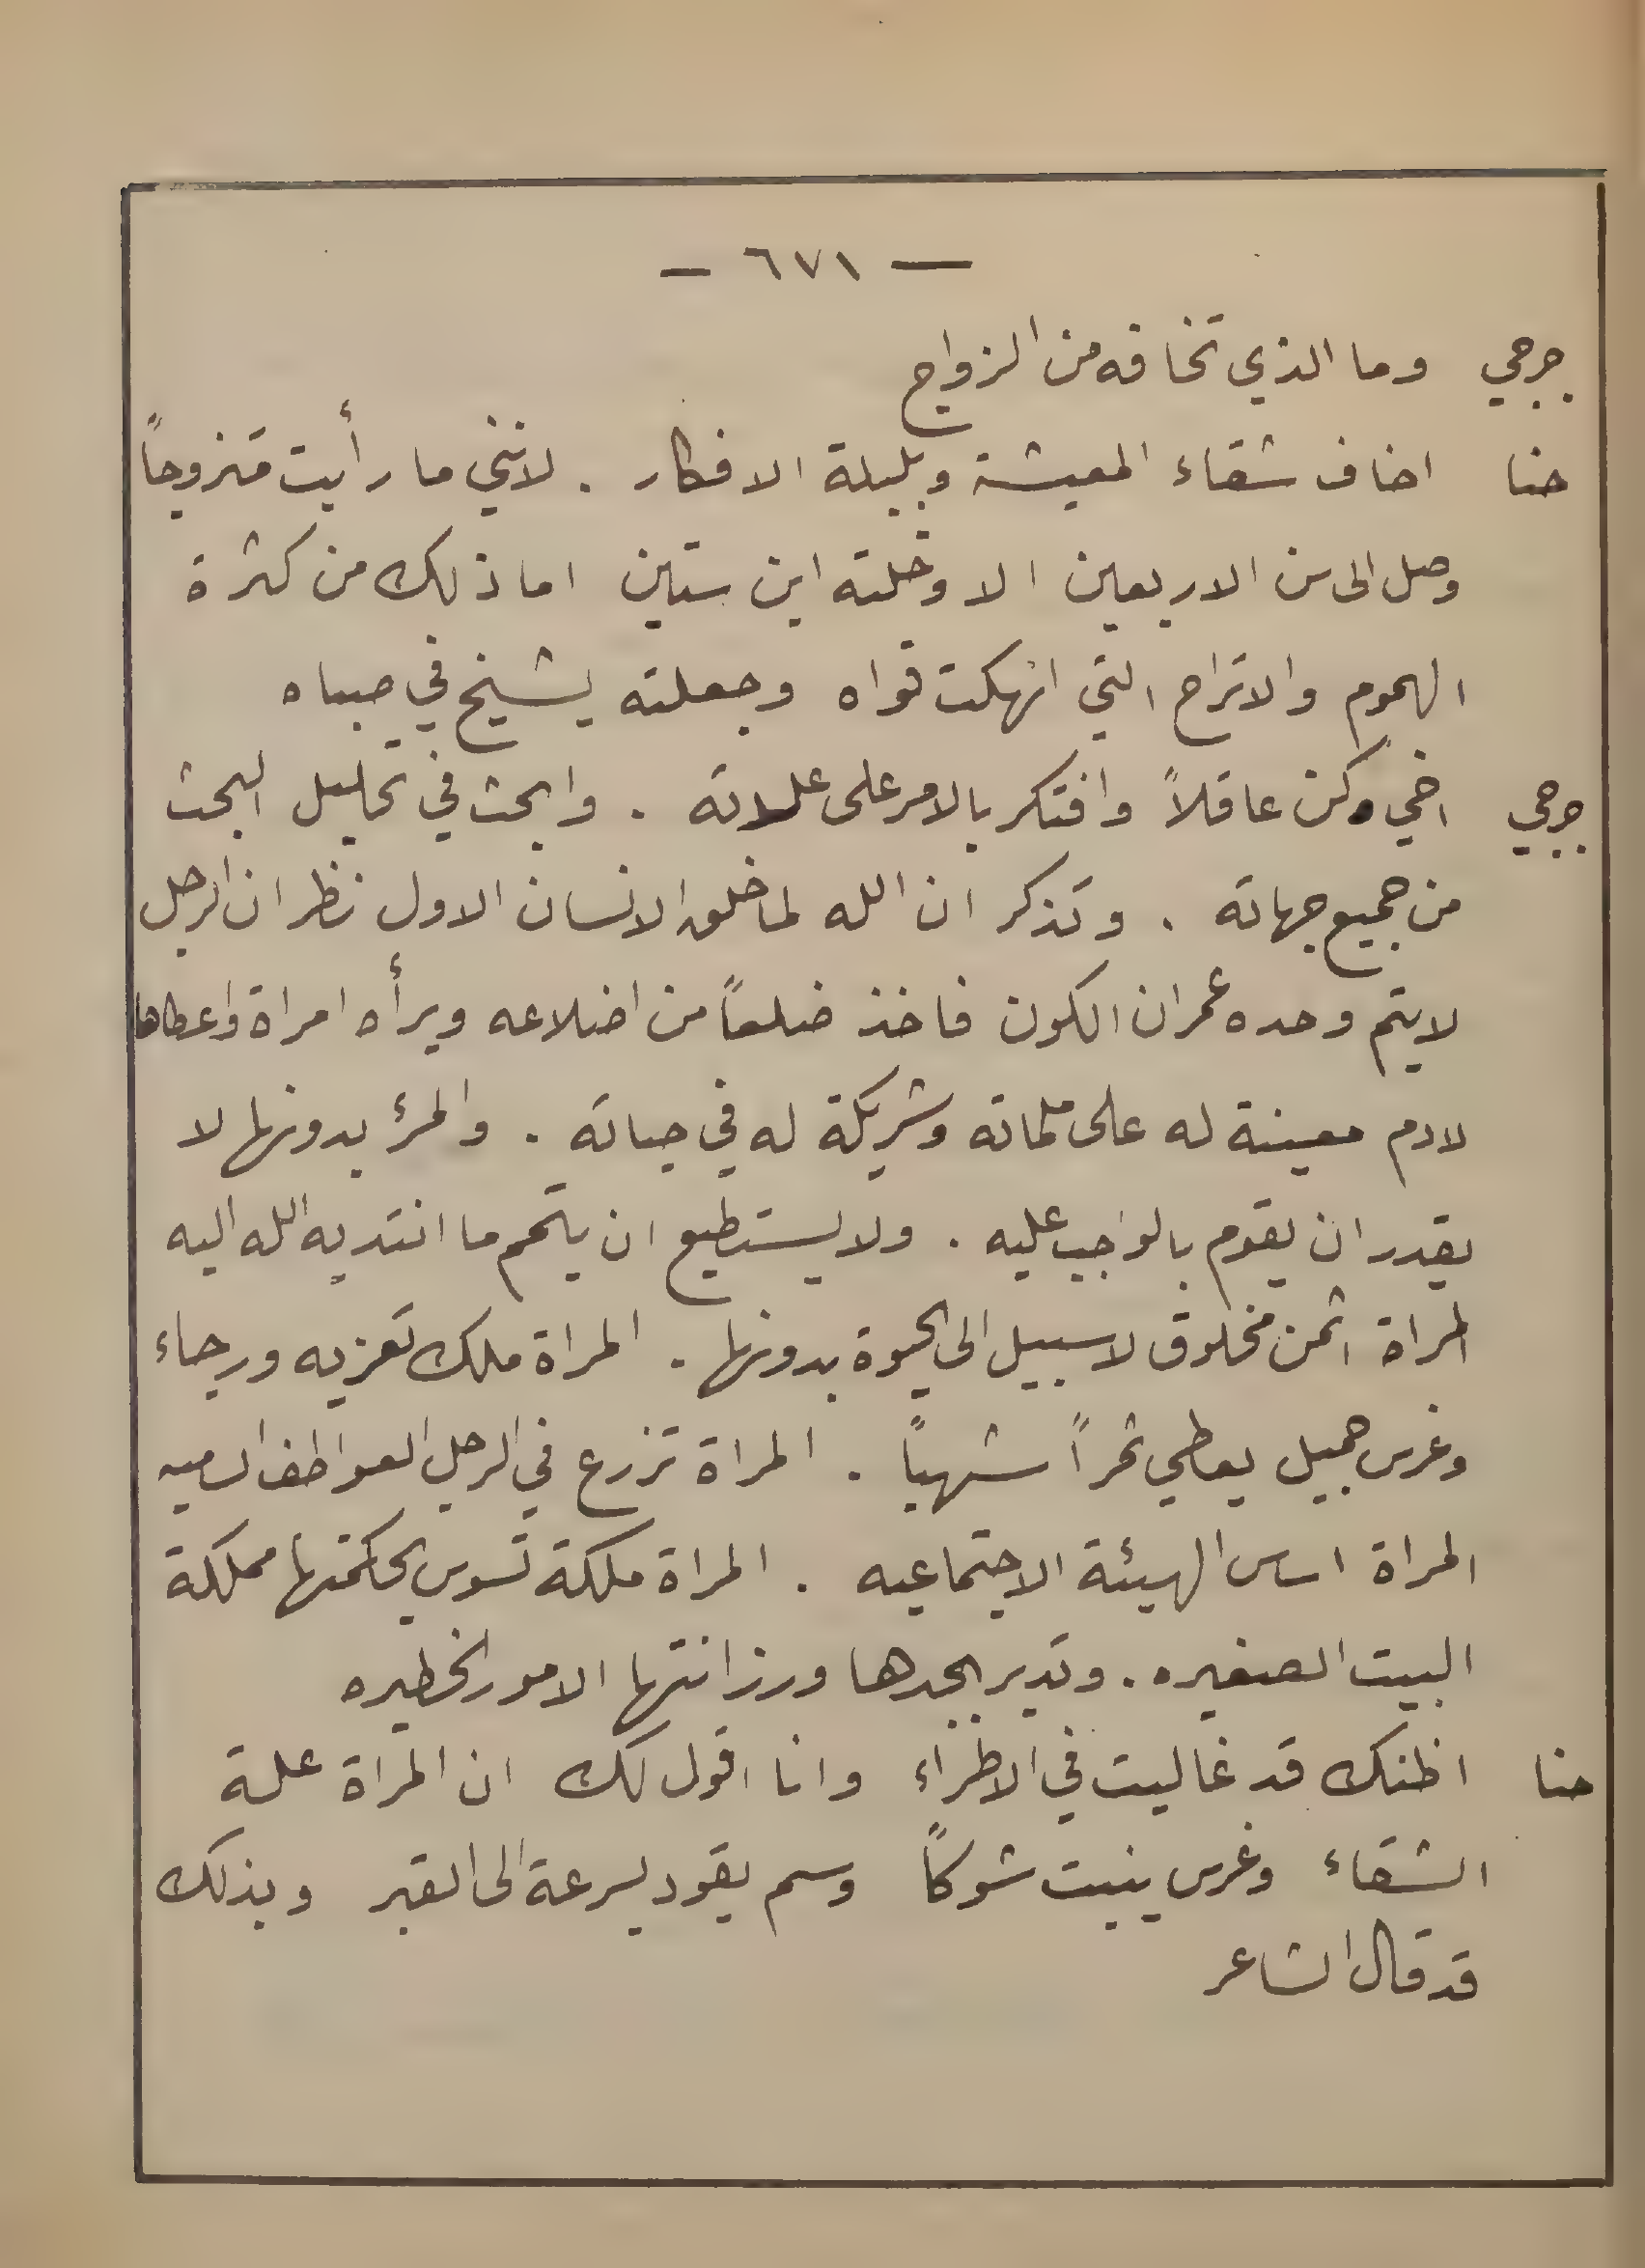 — ٦٧١ —
جرجي وما الذي تخافه من الزواج
حنا اخاف شقاء المعيشة وبلبلة الافكار . لانني ما رأيت متزوجاً
وصل الى سن الاربعين الا وخلته ابن ستين اما ذلك من كثرة
الهموم والاتراح التي انهكت قواه وجعلته يشيخ في صباه
جرجي اخي كن عاقلاً وافتكر بالامر على علاته . وابحث في تحليل البحث
من جميع جهاته . وتذكر ان الله لما خلق الانسان الاول نظر ان الرجل
لا يتم وحده عمران الكون فاخذ ضلعاً من اضلاعه وبرأه امراة واعطاها
لادم معينة له على ملماته وشريكة له في حياته . والمرؤ بدونها لا
يقدر ان يقوم بالواجب عليه . ولا يستطيع ان يتمم ما انتدبه الله اليه
المراة اثمن مخلوق لا سبيل الى الحيوة بدونها . المراة ملك تعزيه ورجاء
وغرس جميل يعطي ثمراً شهياً . المراة تزرع في الرجل العواطف الساميه
المراة اساس الهيئة الاجتماعيه . المراة ملكة تسوس بحكمتها مملكة
البيت الصغيره . وتدير بجدها ورزانتها الامور الخطيره
حنا اظنك قد غاليت في الاطراء وانا اقول لك ان المراة علة
الشقاء وغرس ينبت شوكاً وسم يقود بسرعة الى القبر وبذلك
قد قال الشاعر